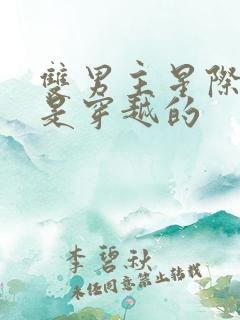 雙男主星際
是穿越的
李碧秋
未经同意禁止转载